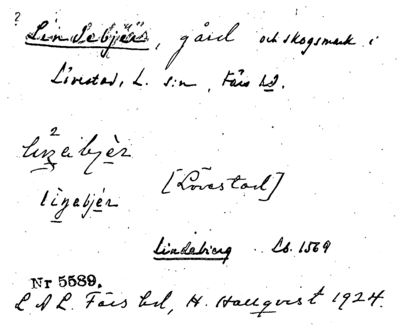 ?
Lindebjär, gård och skogsmark i
Lövestad, L. sn, Färs hd.
2
[Lövestad]
lìŋabjér
Lindeberg Lb. 1569
Nr 5589.
L A L. Färs hd, H. Hallqvist 1924.